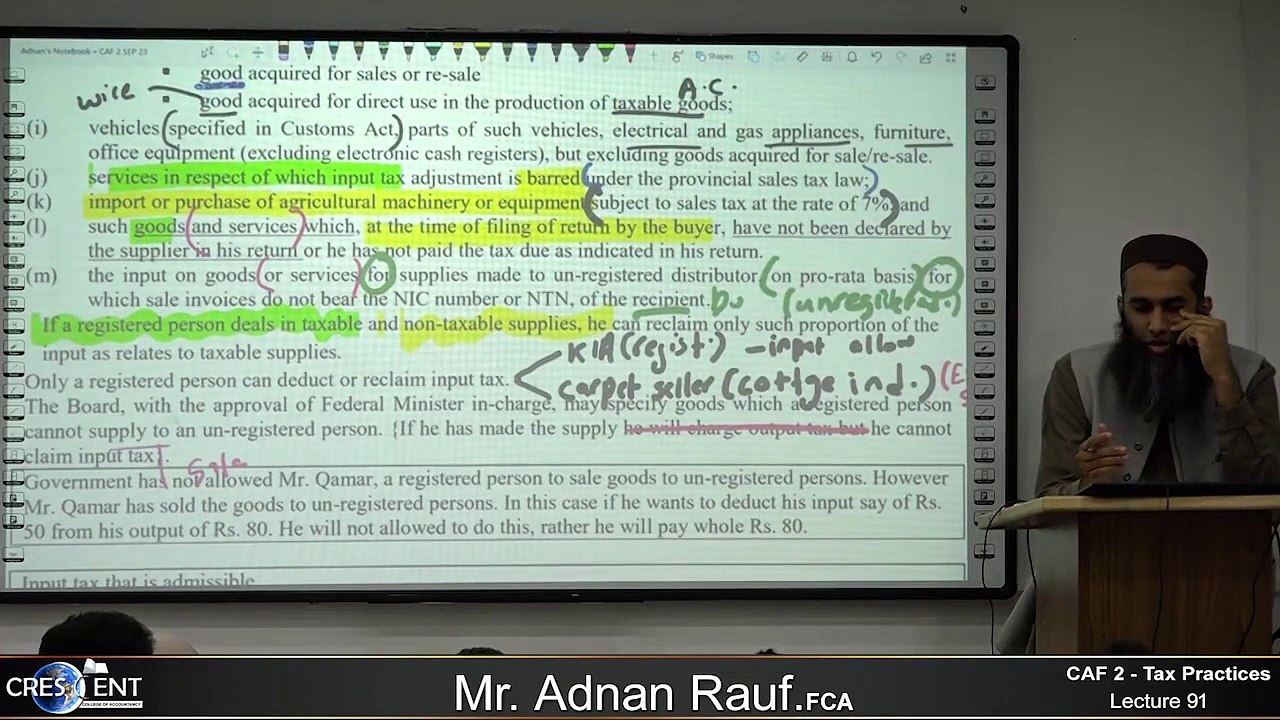 Adnan's Notebook - CAF 2 SEP 23
Shapes
good acquired for sales or re-sale
wire
A.C.
good acquired for direct use in the production of taxable goods;
(i) vehicles (specified in Customs Act,) parts of such vehicles, electrical and gas appliances, furniture,
office equipment (excluding electronic cash registers), but excluding goods acquired for sale/re-sale.
(j) services in respect of which input tax adjustment is barred (under the provincial sales tax law;)
(k) import or purchase of agricultural machinery or equipment (subject to sales tax at the rate of 7%) and
(l) such goods (and services) which, at the time of filing of return by the buyer, have not been declared by
the supplier in his return or he has not paid the tax due as indicated in his return.
(m) the input on goods (or services) for supplies made to un-registered distributor (on pro-rata basis) for
which sale invoices do not bear the NIC number or NTN, of the recipient.
If a registered person deals in taxable and non-taxable supplies, he can reclaim only such proportion of the
input as relates to taxable supplies.
KIA (regist.) - input allow
Only a registered person can deduct or reclaim input tax.
carpet seller (cottge ind.)
The Board, with the approval of Federal Minister in-charge, may specify goods which a registered person
cannot supply to an un-registered person. {If he has made the supply he will charge output tax but he cannot
claim input tax}.
Sale
Government has not allowed Mr. Qamar, a registered person to sale goods to un-registered persons. However
Mr. Qamar has sold the goods to un-registered persons. In this case if he wants to deduct his input say of Rs.
50 from his output of Rs. 80. He will not allowed to do this, rather he will pay whole Rs. 80.
Input tax that is admissible
CRESCENT
COLLEGE OF ACCOUNTANCY
Mr. Adnan Rauf.FCA
CAF 2 - Tax Practices
Lecture 91